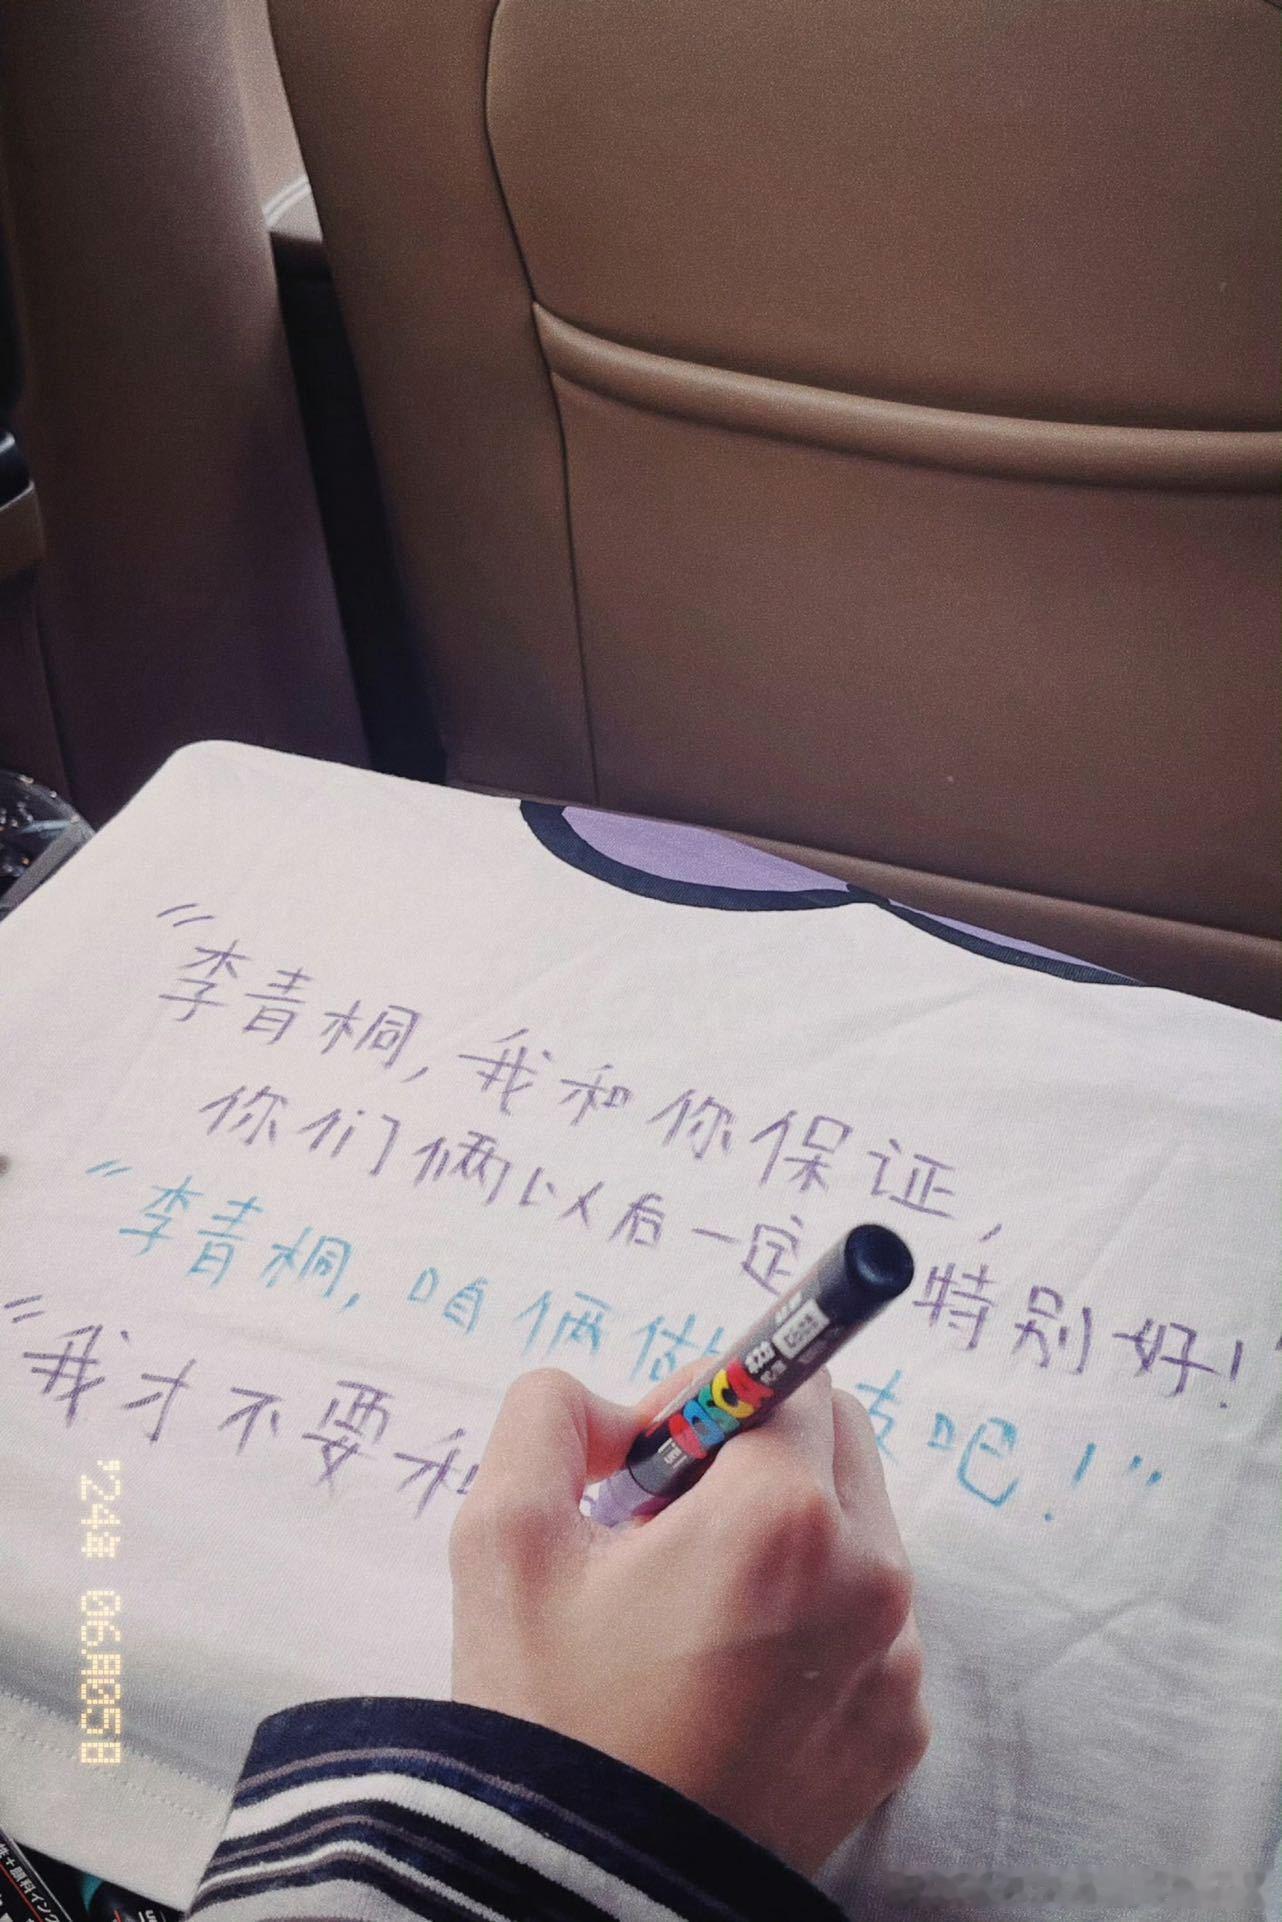 “李青桐，我和你保证，
你们俩以后一定 特别好！”
“李青桐，咱俩做 吧！”
“我才不要和
'24年 06月05日
POSCA
uni